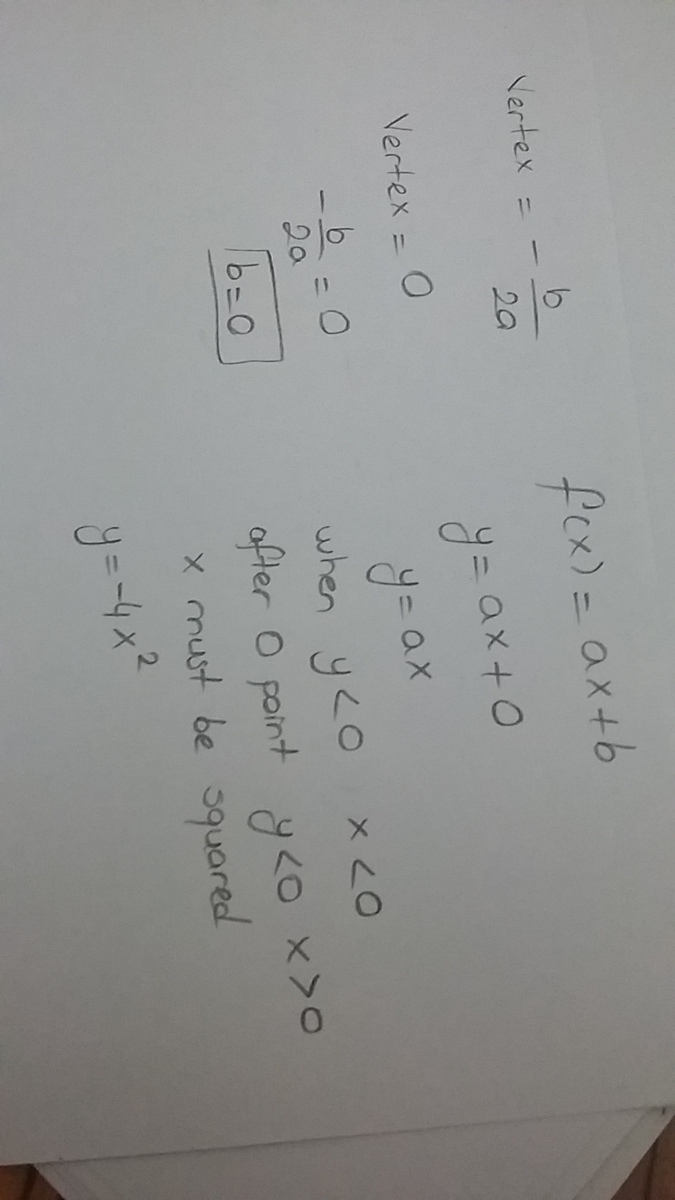 f(x) = ax+b
y = ax+0
y = ax
when y<0 x<0
after 0 point y<0 x>0
x must be squared
y = -4x²
Vertex = -b/2a
Vertex = 0
-b/2a = 0
b=0